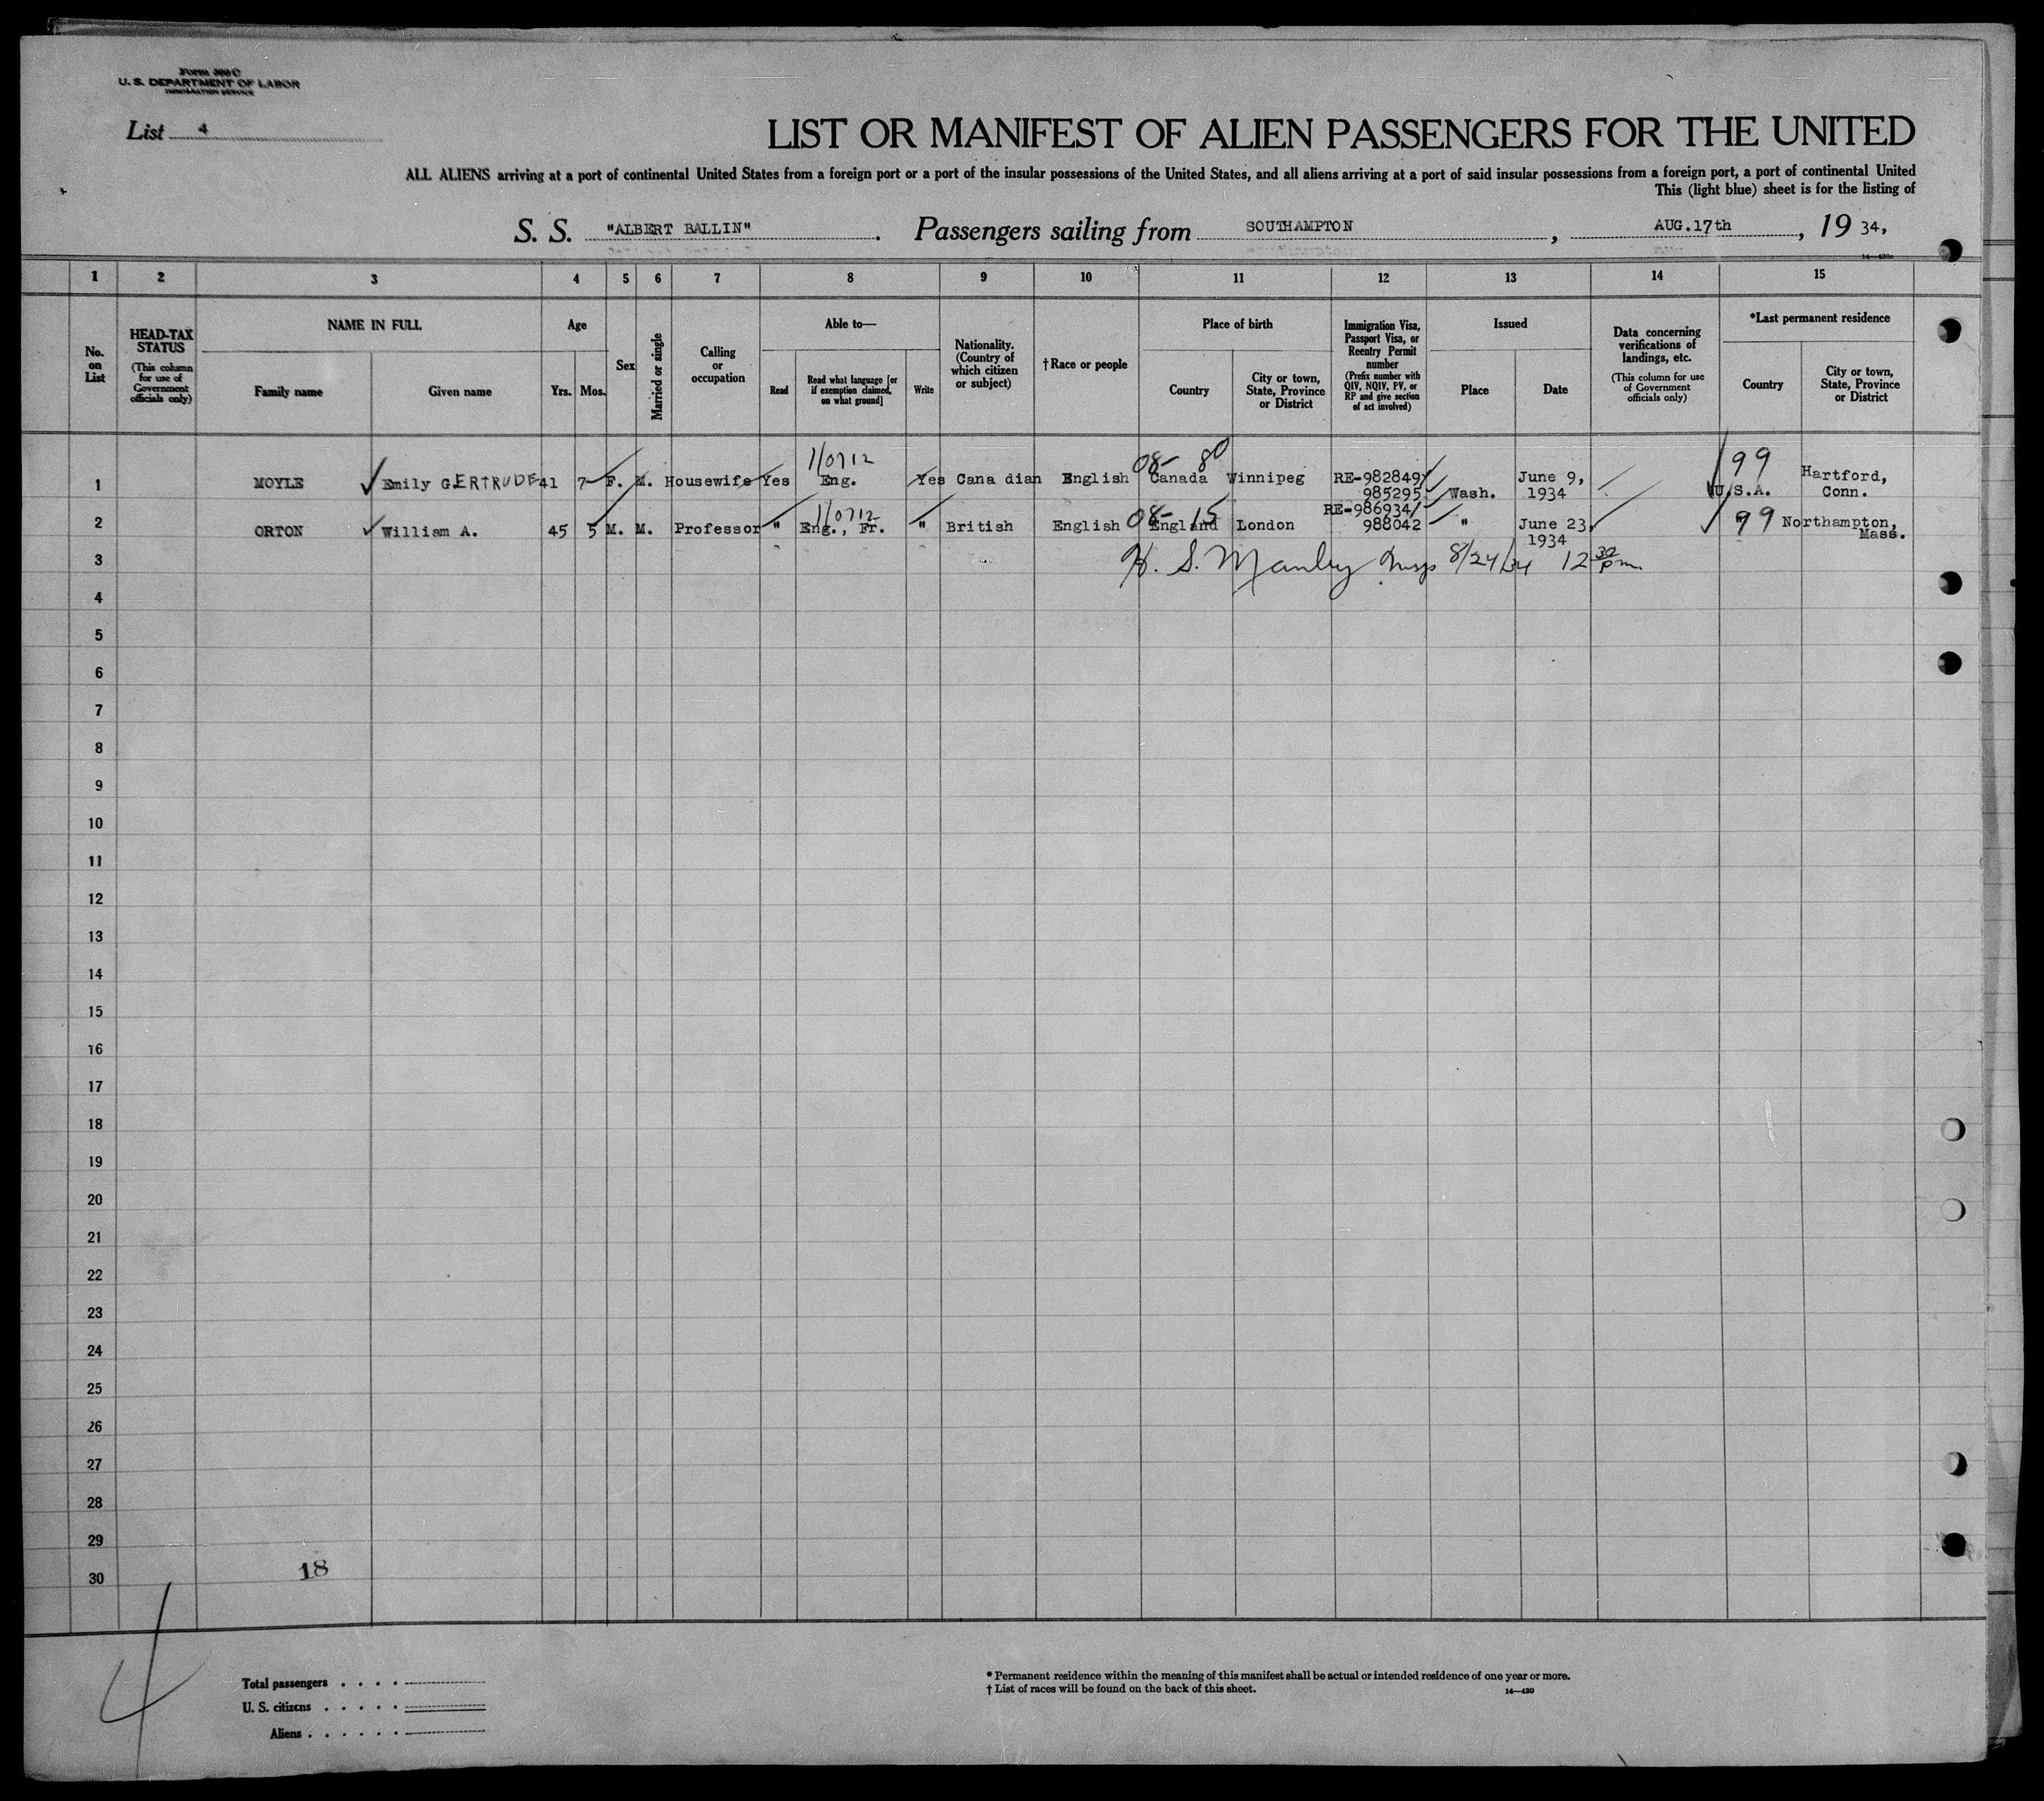 Form 500 C
U. S. DEPARTMENT OF LABOR
IMMIGRATION SERVICE
List 4
LIST OR MANIFEST OF ALIEN PASSENGERS FOR THE UNITED
ALL ALIENS arriving at a port of continental United States from a foreign port or a port of the insular possessions of the United States, and all aliens arriving at a port of said insular possessions from a foreign port, a port of continental United
This (light blue) sheet is for the listing of
S. S. "ALBERT BALLIN". Passengers sailing from SOUTHAMPTON, AUG.17th, 19 34,
14—430a
1 2 3 4 5 6 7 8 9 10 11 12 13 14 15
No. on List
HEAD-TAX STATUS (This column for use of Government officials only)
NAME IN FULL
Family name Given name
Age
Yrs. Mos.
Sex
Married or single
Calling or occupation
Able to—
Read Read what language [or if exemption claimed, on what ground] Write
Nationality. (Country of which citizen or subject)
†Race or people
Place of birth
Country City or town, State, Province or District
Immigration Visa, Passport Visa, or Reentry Permit number (Prefix number with QIV, NQIV, PV, or RP and give section of act involved)
Issued
Place Date
Data concerning verifications of landings, etc. (This column for use of Government officials only)
*Last permanent residence
Country City or town, State, Province or District
1/0712 08- 80 99
1 MOYLE Emily GERTRUDE 41 7 F. M. Housewife Yes Eng. Yes Cana dian English Canada Winnipeg RE-982849 985295 Wash. June 9, 1934 U.S.A. Hartford, Conn.
1/0712 08- 15 99
2 ORTON William A. 45 5 M. M. Professor " Eng., Fr. " British English England London RE-986934/ 988042 " June 23, 1934 Northampton, Mass.
3 H. S. Manley Insp 8/24/34 12 30 pm
4
5
6
7
8
9
10
11
12
13
14
15
16
17
18
19
20
21
22
23
24
25
26
27
28
29
30
18
4
Total passengers . . . .
U. S. citizens . . . . .
Aliens . . . . . .
* Permanent residence within the meaning of this manifest shall be actual or intended residence of one year or more.
† List of races will be found on the back of this sheet.
14—430